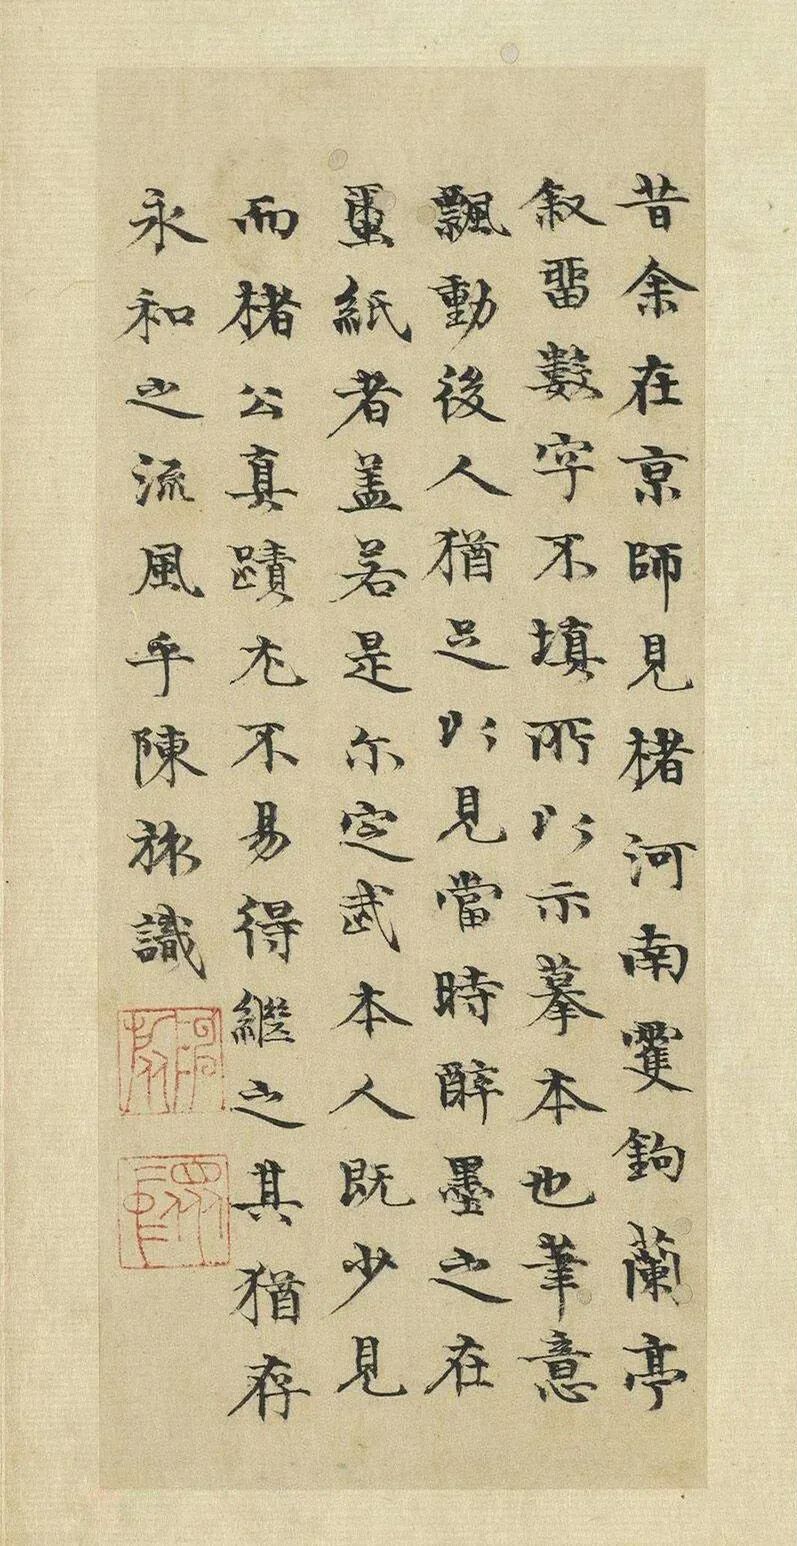 昔余在京師見楮河南雙鉤蘭亭
叙留數字不填所以示摹本也筆意
飄動後人猶足以見當時醉墨之在
蠒紙者盖若是尒定武本人既少見
而楮公真蹟尤不易得繼之其猶存
永和之流風乎陳旅識